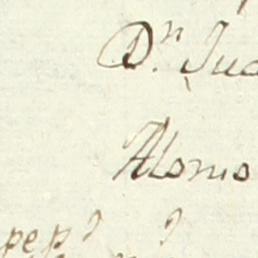 Dn. Jua
Alonso
pepo